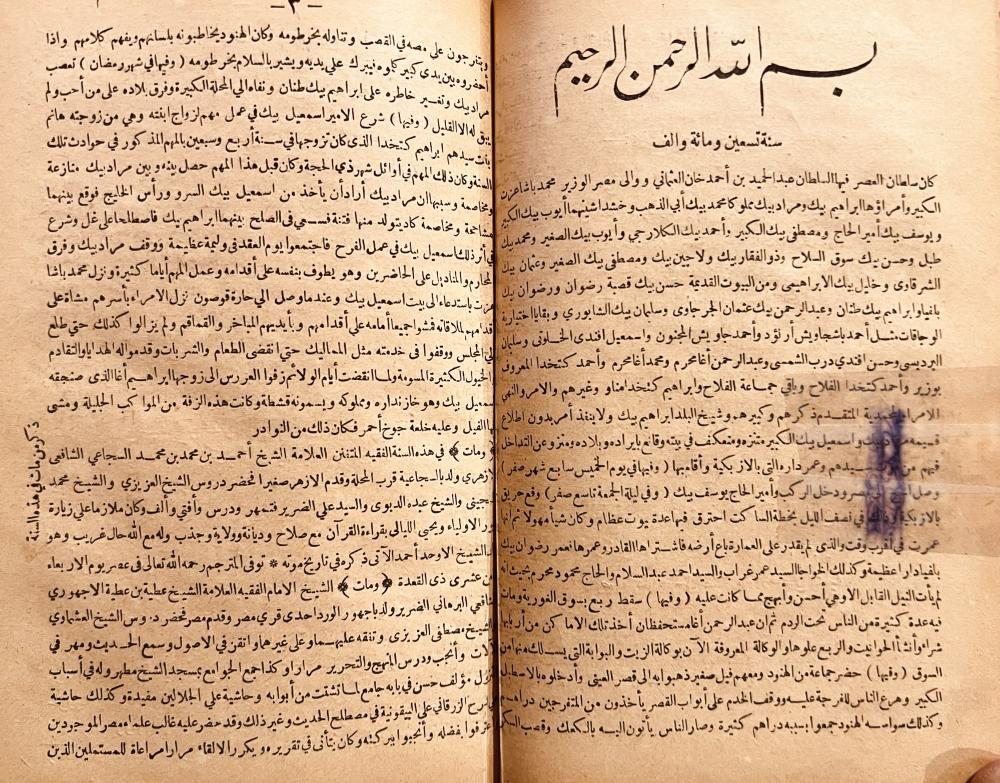 بسم الله الرحمن الرحيم
سنة تسعين ومائة وألف
كان سلطان العصر فيها السلطان عبد الحميد بن أحمد خان العثماني ووالى مصر الوزير محمد باشا عزت
الكبير وأمراؤها ابراهيم بيك ومراد بيك مملوكا محمد بيك أبي الذهب وخشداشينهما أيوب بيك الكبير
ويوسف بيك أمير الحاج ومصطفى بيك الكبير وأحمد بيك الكلارجي وأيوب بيك الصغير ومحمد بيك
طبل وحسن بيك سوق السلاح وذو الفقار بيك ولاجين بيك ومصطفى بيك الصغير وعثمان بيك
الشرقاوى وخليل بيك الابراهيمى ومن البيوت القديمة حسن بيك قصبة رضوان ورضوان بيك
بلفيا وابراهيم بيك طنان وعبد الرحمن بيك عثمان الجرجاوى وسليمان بيك الشابورى وبقايا اختيارية
الوجاقات مثل أحمد باشجاويش أرنؤد وأحمد جاويش المجنون واسمعيل افندى الخلوتى وسليمان
البرديسى وحسن افندى درب الشمسى وعبد الرحمن أغا محرم ومحمد أغا محرم وأحمد كتخدا المعروف
بوزير وأحمد كتخدا الفلاح وباقى جماعة الفلاح وابراهيم كتخدا مناو وغيرهم والامر والنهى
للامراء المحمدية المتقدم ذكرهم وكبيرهم وشيخ البلد ابراهيم بيك ولا ينفذ أمر بدون اطلاع
قسيمه مراد بيك واسمعيل بيك الكبير متنزه ومنعكف فى بيته وقانع بايراده وبلاده ومنزو عن التداخل
فيهم من موت سيدهم وعمر داره التى بالازبكية وأقام بها (وفيها) فى يوم الخميس سابع شهر صفر
وصل الحج الى مصر ودخل الركب وأمير الحاج يوسف بيك (وفى ليلة الجمعة تاسع صفر) وقع حريق
بالازبكية وذلك فى نصف الليل بخطة الساكت احترق فيها عدة بيوت عظام وكان شيأ مهولا ثم انها
عمرت فى أقرب وقت والذى لم يقدر على العمارة باع أرضه فاشتراها القادر وعمرها فعمر رضوان بيك
بلفيا دارا عظيمة وكذلك الخواجا السيد عمر غراب والسيد احمد عبد السلام والحاج محمود محرم بحيث انه
لم يأت النيل القابل الا وهى أحسن وأبهج مما كانت عليه (وفيها) سقط ربع بسوق الغورية ومات
فيه عدة كثيرة من الناس تحت الردم ثم ان عبد الرحمن أغا مستحفظان أخذ تلك الاماكن من أربابها
شراء وأنشأ الحوانيت والربع علوها والوكالة المعروفة الآن بوكالة الزيت والبوابة التى يسلك منها من
السوق (وفيها) حضر جماعة من الهنود ومعهم فيل صغير ذهبوا به الى قصر العينى وأدخلوه بالاسطبل
الكبير وهرع الناس للفرجة عليه ووقف الخدم على أبواب القصر يأخذون من المتفرجين دراهم
وكذلك سواسه الهنود جمعوا بسببه دراهم كثيرة وصار الناس يأتون اليه بالكعك وقصب السكر
- ٣ -
ويتفرجون على مصه فى القصب وتناوله بخرطومه وكان الهنود يخاطبونه بلسانهم ويفهم كلامهم واذا
أحضروه بين يدى كبير كلموه فيبرك على يديه ويشير بالسلام بخرطومه (وفيها فى شهر رمضان) تعصب
مراد بيك وتغير خاطره على ابراهيم بيك طنان ونفاه الى المحلة الكبيرة وفرق بلاده على من أحب ولم
يبق له الا القليل (وفيها) شرع الامير اسمعيل بيك فى عمل مهم لزواج ابنته وهى من زوجته هانم
بنت سيدهم ابراهيم كتخدا الذى كان تزوجها فى سنة أربع وسبعين بالمهم المذكور فى حوادث تلك
السنة وكان ذلك المهم فى أوائل شهر ذى الحجة وكان قبل هذا المهم حصل بينه وبين مراد بيك منازعة
ومخاصمة وسببها ان مراد بيك أراد أن يأخذ من اسمعيل بيك السرو ورأس الخليج فوقع بينهما
مشاحمة ومخاصمة كاد يتولد منها فتنة فسعى فى الصلح بينهما ابراهيم بيك فاصطلحا على غل وشرع
فى أثر ذلك اسمعيل بيك فى عمل الفرح فاجتمعوا يوم العقد فى وليمة عظيمة ووقف مراد بيك وفرق
المحارم والمناديل على الحاضرين وهو يطوف بنفسه على أقدامه وعمل المهم أياما كثيرة ونزل محمد باشا
عزت باستدعاء الى بيت اسمعيل بيك وعند ما وصل الى حارة قوصون نزل الامراء بأسرهم مشاة على
أقدامهم لملاقاته فمشوا جميعا أمامه على أقدامهم وبأيديهم المباخر والقماقم ولم يزالوا كذلك حتى طلع
الى المجلس ووقفوا فى خدمته مثل المماليك حتى انقضى الطعام والشربات وقدموا له الهدايا والتقادم
والخيول الكثيرة المسومة ولما انقضت أيام الولائم زفوا العروس الى زوجها ابراهيم أغا الذى صنجقه
اسمعيل بيك وهو خازنداره ومملوكه ويسمونه قشطة وكانت هذه الزفة من المواكب الجليلة ومشى
فيها الفيل وعليه خلعة جوخ أحمر فكان ذلك من النوادر
﴿ومات﴾ فى هذه السنة الفقيه المتفنن العلامة الشيخ أحمد بن محمد بن محمد السجاعى الشافعى
الازهرى ولد بالسجاعية قرب المحلة وقدم الازهر صغيرا فحضر دروس الشيخ العزيزى والشيخ محمد
السجينى والشيخ عبده الديوى والسيد على الضرير فتمهر ودرس وأفتى وألف وكان ملازما على زيارة
قبور الاولياء ويحيى الليالى بقراءة القرآن مع صلاح وديانة وولاية وجذب وله مع الله حال غريب وهو
والد الشيخ الاوحد أحمد الآتى ذكره فى تاريخ موته * توفى المترجم رحمه الله تعالى فى عصر يوم الاربعاء
ثامن عشرى ذى القعدة ﴿ومات﴾ الشيخ الامام الفقيه العلامة الشيخ عطية بن عطية الاجهورى
الشافعى البرهانى الضرير ولد باجهور الورد احدى قرى مصر وقدم مصر فحضر دروس الشيخ العشماوى
والشيخ مصطفى العزيزى وتفقه عليهما وعلى غيرهما واتقن فى الاصول وسمع الحديث ومهر فى
الآلات وأنجب ودرس المنهج والتحرير مرارا وكذا جمع الجوامع بمسجد الشيخ مطهر وله فى أسباب
النزول مؤلف حسن فى بابه جامع لما تشتت من أبوابه وحاشية على الجلالين مفيدة وكذلك حاشية
على شرح الزرقانى على البيقونية فى مصطلح الحديث وغير ذلك وقد حضر عليه غالب علماء مصر الموجودين
واعترفوا بفضله وأنجبوا ببركته وكان يتأنى فى تقريره ويكرر الالقاء مرارا مراعاة للمستملين الذين
ذكر من مات فى هذه السنة